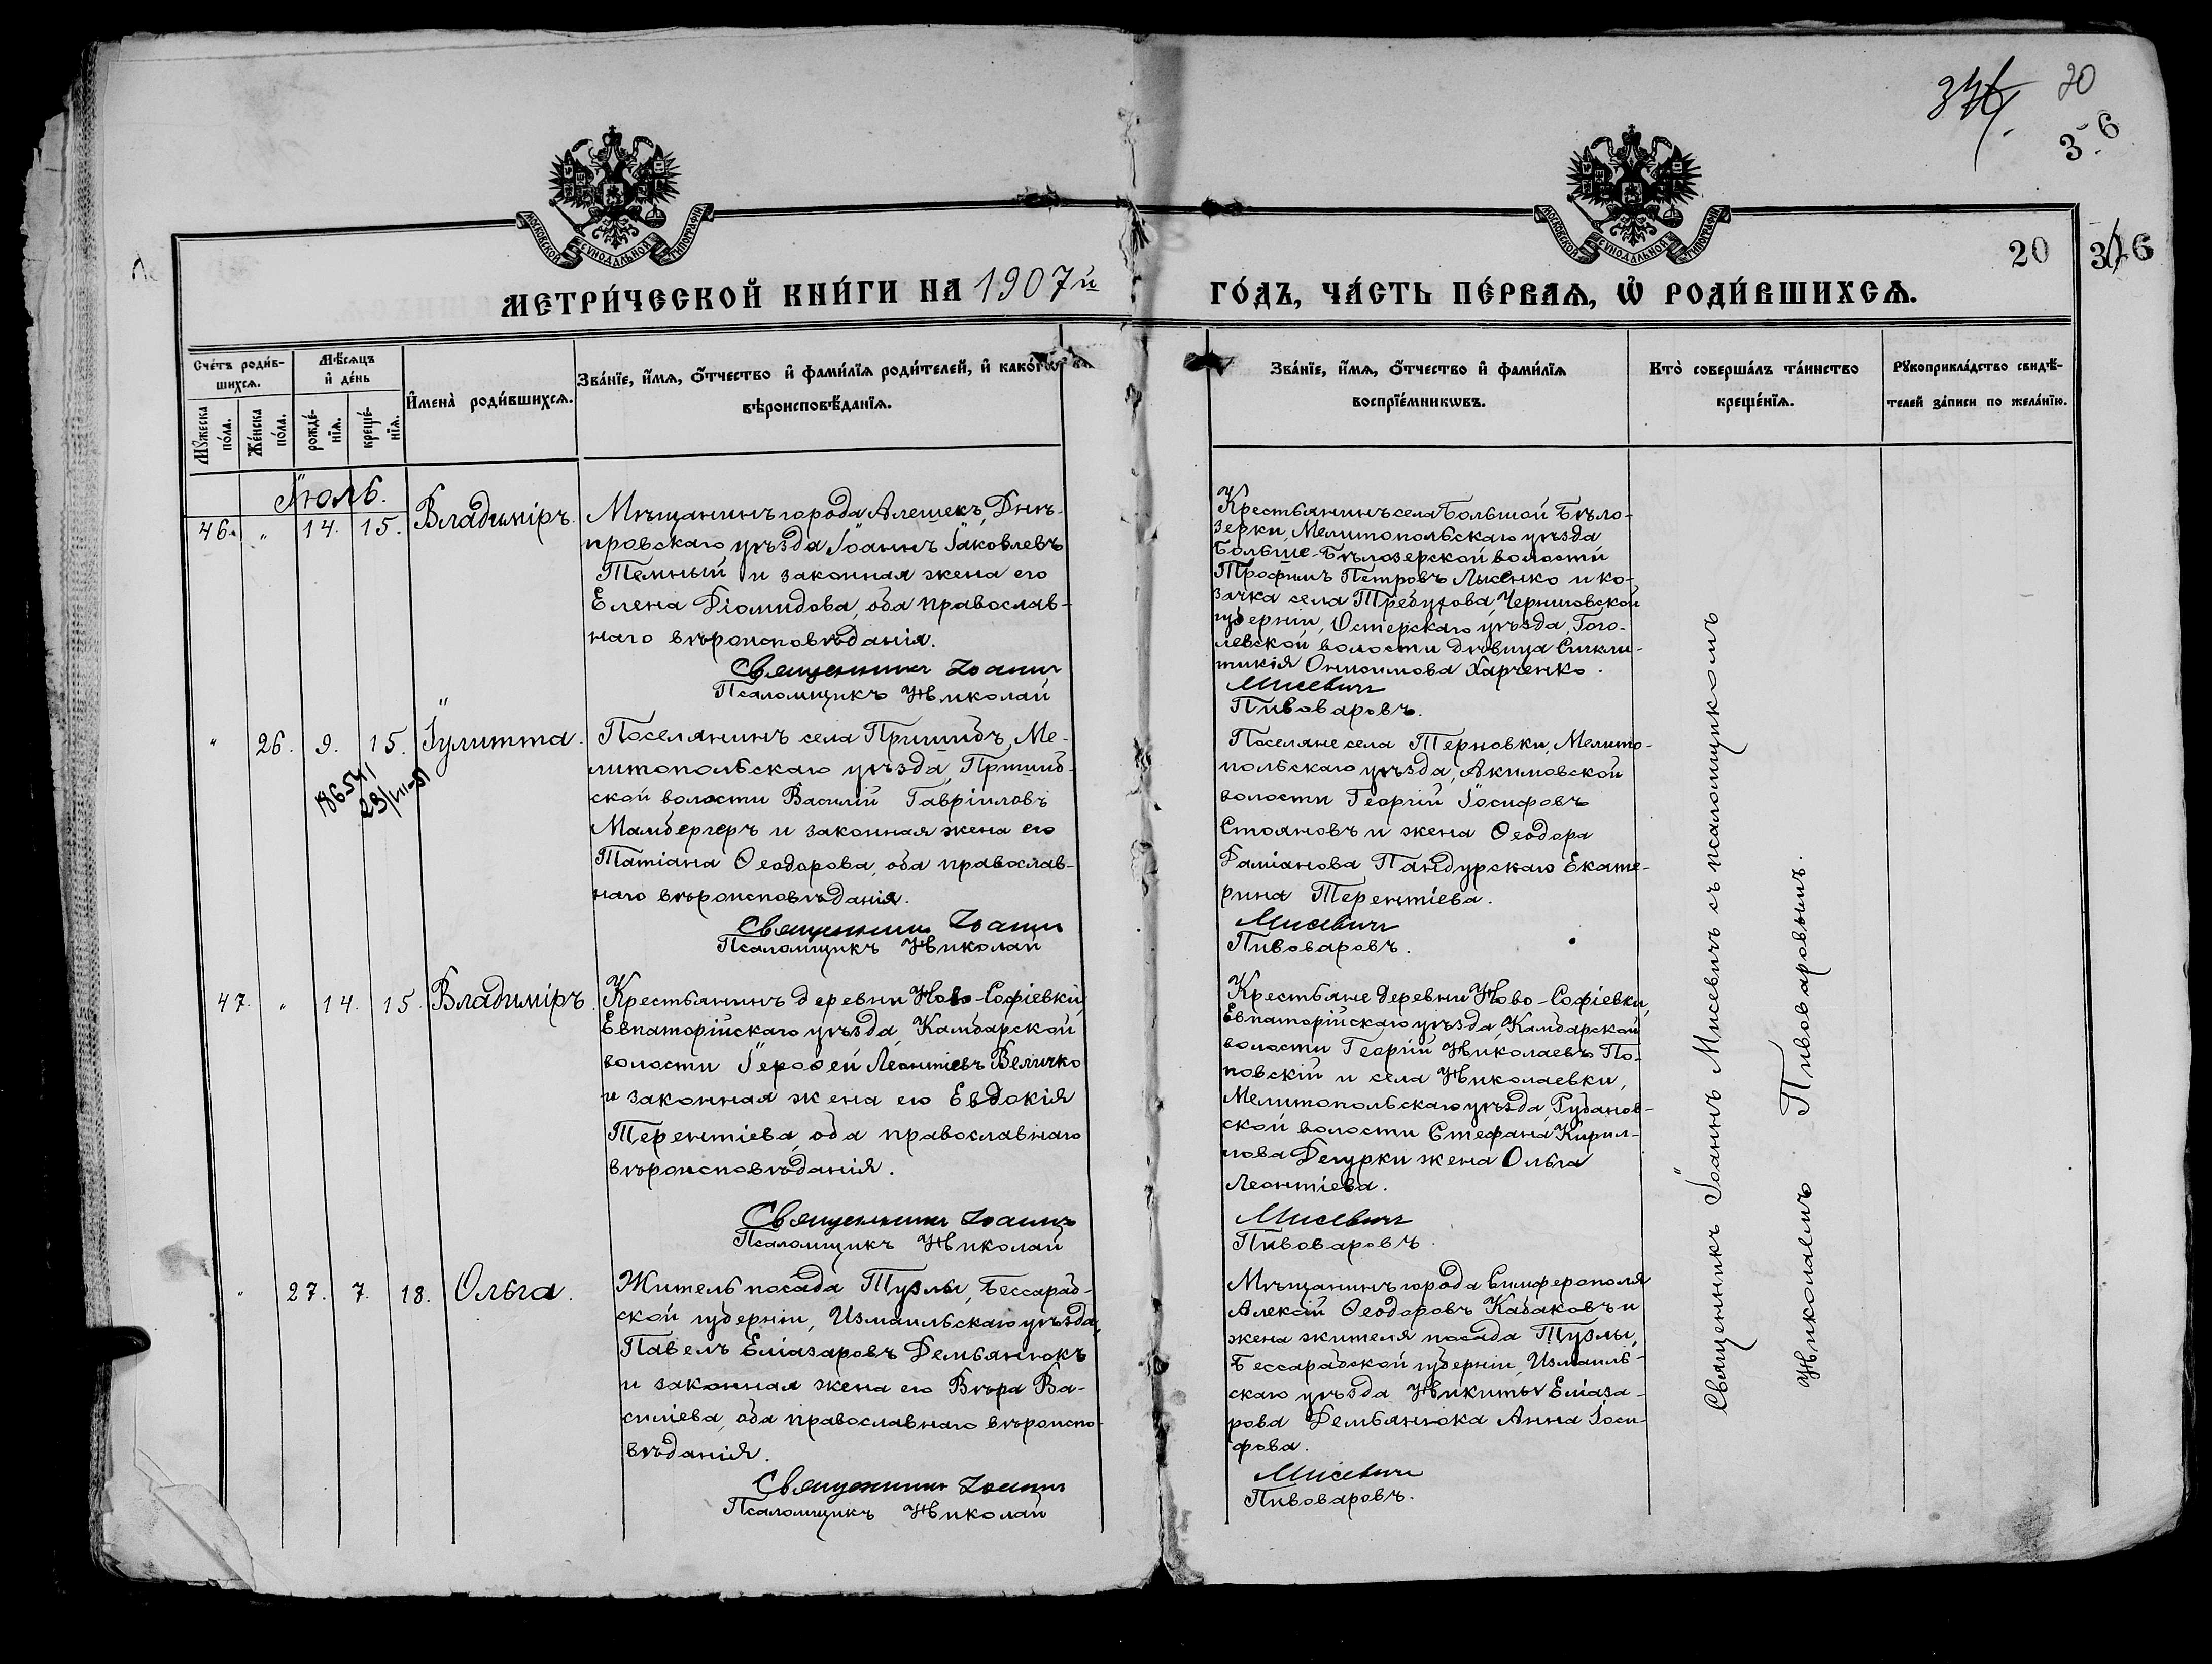 376
20
3-6
МОСКОВСКОЙ СѴНОДАЛЬНОЙ ТИПОГРАФІИ
МОСКОВСКОЙ СѴНОДАЛЬНОЙ ТИПОГРАФІИ
20
МЕТРИ́ЧЕСКОЙ КНИ́ГИ НА 1907й ГО́ДЪ, ЧА́СТЬ ПЕ́РВАѦ, Ѡ҆ РОДИ́ВШИХСѦ.
Сче́тъ роди́в-
шихсѧ.
Мꙋ́жеска по́ла.
Же́нска по́ла.
Мѣ́сѧцъ и҆ де́нь
рожде́-
нїѧ.
креще́-
нїѧ.
И҆мена̀ роди́вшихсѧ.
Зва́нїе, и҆́мѧ, ѻ҆́тчество и҆ фами́лїѧ роди́телей, и҆ како́гѡ
вѣроисповѣ́данїѧ.
Зва́нїе, и҆́мѧ, ѻ҆́тчество и҆ фами́лїѧ
воспрїе́мникѡвъ.
Кто̀ соверша́лъ та́инство
креще́нїѧ.
Рꙋкоприкла́дство свидѣ́-
телей за́писи по жела́нїю.
Іюль.
46. " 14. 15. Владиміръ.
Мѣщанинъ города Алешекъ, Днѣ-
провскаго уѣзда Іоаннъ Іаковлевъ
Темный и законная жена его
Елена Діомидова, оба православ-
наго вѣроисповѣданія.
Священникъ Іоаннъ
Псаломщикъ Николай
Крестьянинъ села Большой Бѣло-
зерки, Мелитопольскаго уѣзда
Больше-Бѣлозерской волости
Трофимъ Петровъ Лысенко и ко-
зачка села Требухова, Черниговской
губерніи, Остерскаго уѣзда, Гого-
левской волости дѣвица Синкли-
тикія Онисимова Харченко.
Мисевичъ
Пивоваровъ.
" 26. 9. 15. Іулитта.
18654/
29/VII-51
Поселянинъ села Пришибъ, Ме-
литопольскаго уѣзда, Пришиб-
ской волости Василій Гавріиловъ
Мамбергеръ и законная жена его
Татіана Ѳеодорова, оба православ-
наго вѣроисповѣданія.
Священникъ Іоаннъ
Псаломщикъ Николай
Поселяне села Терновки, Мелито-
польскаго уѣзда, Акимовской
волости Георгій Іосифовъ
Стояновъ и жена Ѳеодора
Даміанова Пандурскаго Екате-
рина Терентіева.
Мисевичъ
Пивоваровъ.
47. " 14. 15. Владиміръ.
Крестьянинъ деревни Ново-Софіевки,
Евпаторійскаго уѣзда, Камбарской
волости Іероѳей Леонтіевъ Величко
и законная жена его Евдокія
Терентіева, оба православнаго
вѣроисповѣданія.
Священникъ Іоаннъ
Псаломщикъ Николай
Крестьяне деревни Ново-Софіевки,
Евпаторійскаго уѣзда, Камбарской
волости Георгій Николаевъ По-
повскій и села Николаевки,
Мелитопольскаго уѣзда Рубанов-
ской волости Стефана Кирил-
лова Дегурки жена Ольга
Леонтіева.
Мисевичъ
Пивоваровъ.
" 27. 7. 18. Ольга.
Житель посада Тузлы, Бессараб-
ской губерніи, Измаильскаго уѣзда,
Павелъ Еліазаровъ Демьянюкъ
и законная жена его Вѣра Ва-
силіева, оба православнаго вѣроиспо-
вѣданія.
Священникъ Іоаннъ
Псаломщикъ Николай
Мѣщанинъ города Симферополя
Алексій Ѳеодоровъ Кабаковъ и
жена жителя посада Тузлы,
Бессарабской губерніи, Измаиль-
скаго уѣзда Никиты Еліаза-
рова Демьянюка Анна Іоси-
фова.
Мисевичъ
Пивоваровъ.
Священникъ Іоаннъ Мисевичъ съ псаломщикомъ
Николаемъ Пивоваровымъ.